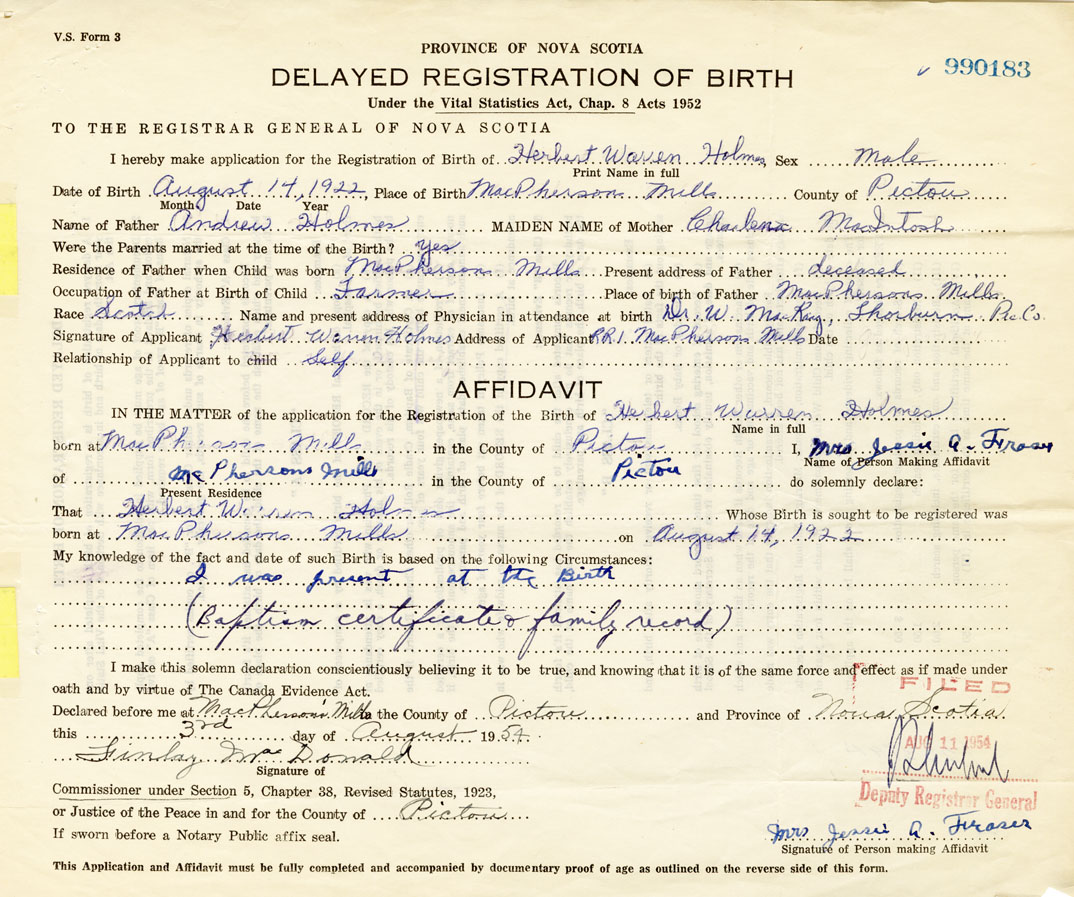 V.S. Form 3
PROVINCE OF NOVA SCOTIA
DELAYED REGISTRATION OF BIRTH
990183
Under the Vital Statistics Act, Chap. 8 Acts 1952
TO THE REGISTRAR GENERAL OF NOVA SCOTIA
I hereby make application for the Registration of Birth of Herbert Warren Holmes, Sex Male
Print Name in full
Date of Birth August 14, 1922, Place of Birth MacPhersons Mills County of Pictou
Month Date Year
Name of Father Andrew Holmes MAIDEN NAME of Mother Charlena MacIntosh
Were the Parents married at the time of the Birth? Yes
Residence of Father when Child was born MacPhersons Mills Present address of Father deceased
Occupation of Father at Birth of Child Farmer Place of birth of Father MacPhersons Mills
Race Scotch Name and present address of Physician in attendance at birth Dr. W. MacKay, Thorburn Pic. Co.
Signature of Applicant Herbert Warren Holmes Address of Applicant RR1. MacPhersons Mills Date
Relationship of Applicant to child Self
AFFIDAVIT
IN THE MATTER of the application for the Registration of the Birth of Herbert Warren Holmes
Name in full
born at MacPhersons Mills in the County of Pictou I, Mrs Jessie A. Fraser
Name of Person Making Affidavit
of McPhersons Mills in the County of Pictou do solemnly declare:
Present Residence
That Herbert Warren Holmes Whose Birth is sought to be registered was
born at MacPhersons Mills on August 14, 1922
My knowledge of the fact and date of such Birth is based on the following Circumstances:
I was present at the Birth
(Baptism certificate & family record)
I make this solemn declaration conscientiously believing it to be true, and knowing that it is of the same force and effect as if made under
oath and by virtue of The Canada Evidence Act.
FILED
Declared before me at MacPherson's Mills the County of Pictou and Province of Nova Scotia
this 3rd day of August 1954
AUG 11 1954
Finlay MacDonald
Signature of
Commissioner under Section 5, Chapter 38, Revised Statutes, 1923,
Deputy Registrar General
or Justice of the Peace in and for the County of Pictou
Mrs Jessie A. Fraser
If sworn before a Notary Public affix seal.
Signature of Person making Affidavit
This Application and Affidavit must be fully completed and accompanied by documentary proof of age as outlined on the reverse side of this form.